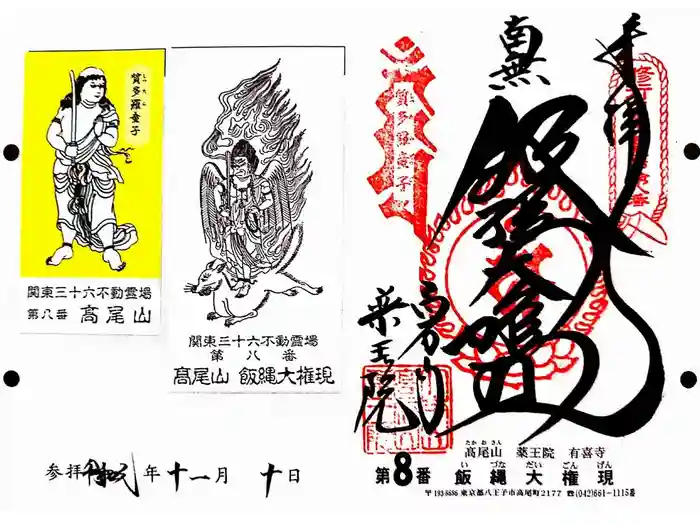 質多羅童子
しったら
関東三十六不動霊場
第八番 髙尾山
関東三十六不動霊場
第八番
髙尾山 飯縄大権現
参拝 令和弐年十一月十日
奉拝
南無
飯縄大権現
高尾山
薬王院
質多羅童子
たかおさん
髙尾山 薬王院 有喜寺
いづなだいごんげん
第8番 飯縄大権現
〒193-8686 東京都八王子市高尾町2177 ☎(042)661-1115番